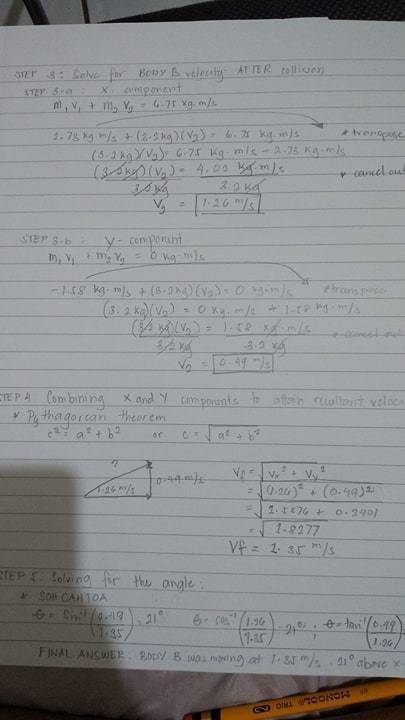 STEP 3: Solve for BODY B velocity AFTER collision
STEP 3-a : X component
m₁ v₁ + m₂ v₂ = 6.75 kg·m/s
2.73 kg m/s + (3.2 kg)(v₂) = 6.75 kg·m/s * transpose
(3.2 kg)(v₂) = 6.75 kg·m/s - 2.73 kg·m/s
(3.2 kg)(v₂) = 4.02 kg·m/s * cancel out
3.2 kg 3.2 kg
v₂ = 1.26 m/s
STEP 3-b : Y- component
m₁ v₁ + m₂ v₂ = 0 kg·m/s
-1.58 kg·m/s + (3.2 kg)(v₂) = 0 kg·m/s * transpose
(3.2 kg)(v₂) = 0 kg·m/s + 1.58 kg·m/s
(3.2 kg)(v₂) = 1.58 kg·m/s * cancel out
3.2 kg 3.2 kg
v₂ = 0.49 m/s
STEP 4 Combining X and Y components to attain resultant veloci
* Pythagorean theorem
c² = a² + b² or c = √a² + b²
? 0.49 m/s
1.26 m/s
Vf = √Vx² + Vy²
= √(1.26)² + (0.49)²
= √1.5876 + 0.2401
= √1.8277
Vf = 1.35 m/s
STEP 5: Solving for the angle:
* SOH CAH TOA
θ = sin⁻¹ (0.49/1.35) = 21° θ = cos⁻¹ (1.26/1.35) = 21° ; θ = tan⁻¹ (0.49/1.26)
FINAL ANSWER: BODY B was moving at 1.35 m/s, 21° above x-
MONGOL TRIO 2